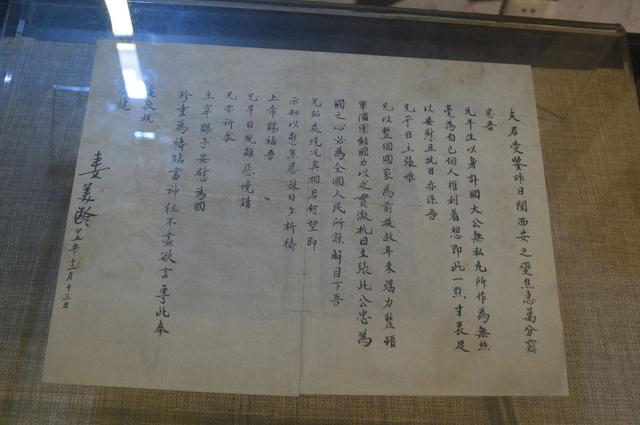 夫君愛鑒昨日聞西安之變焦急萬分竊
思吾
兄平生以身許國大公無私凡所作為無絲
毫為自己個人權利着想即此一點寸衷足
以安慰且抗日亦係吾
兄平日主張惟
兄以整個國家為前提故年來竭力整頓
軍備團結國力以求貫澈抗日主張此公忠為
國之心必為全國人民所諒解目下吾
兄所處境況真相若何望即
示知以慰焦思妹日夕祈禱
上帝賜福吾
兄早日脫離惡境請
兄亦祈求
主宰賜予安慰為國
珍重為禱臨書神往不盡欲言專此奉
達敬祝
健
妻美齡 廿五年十二月十三日